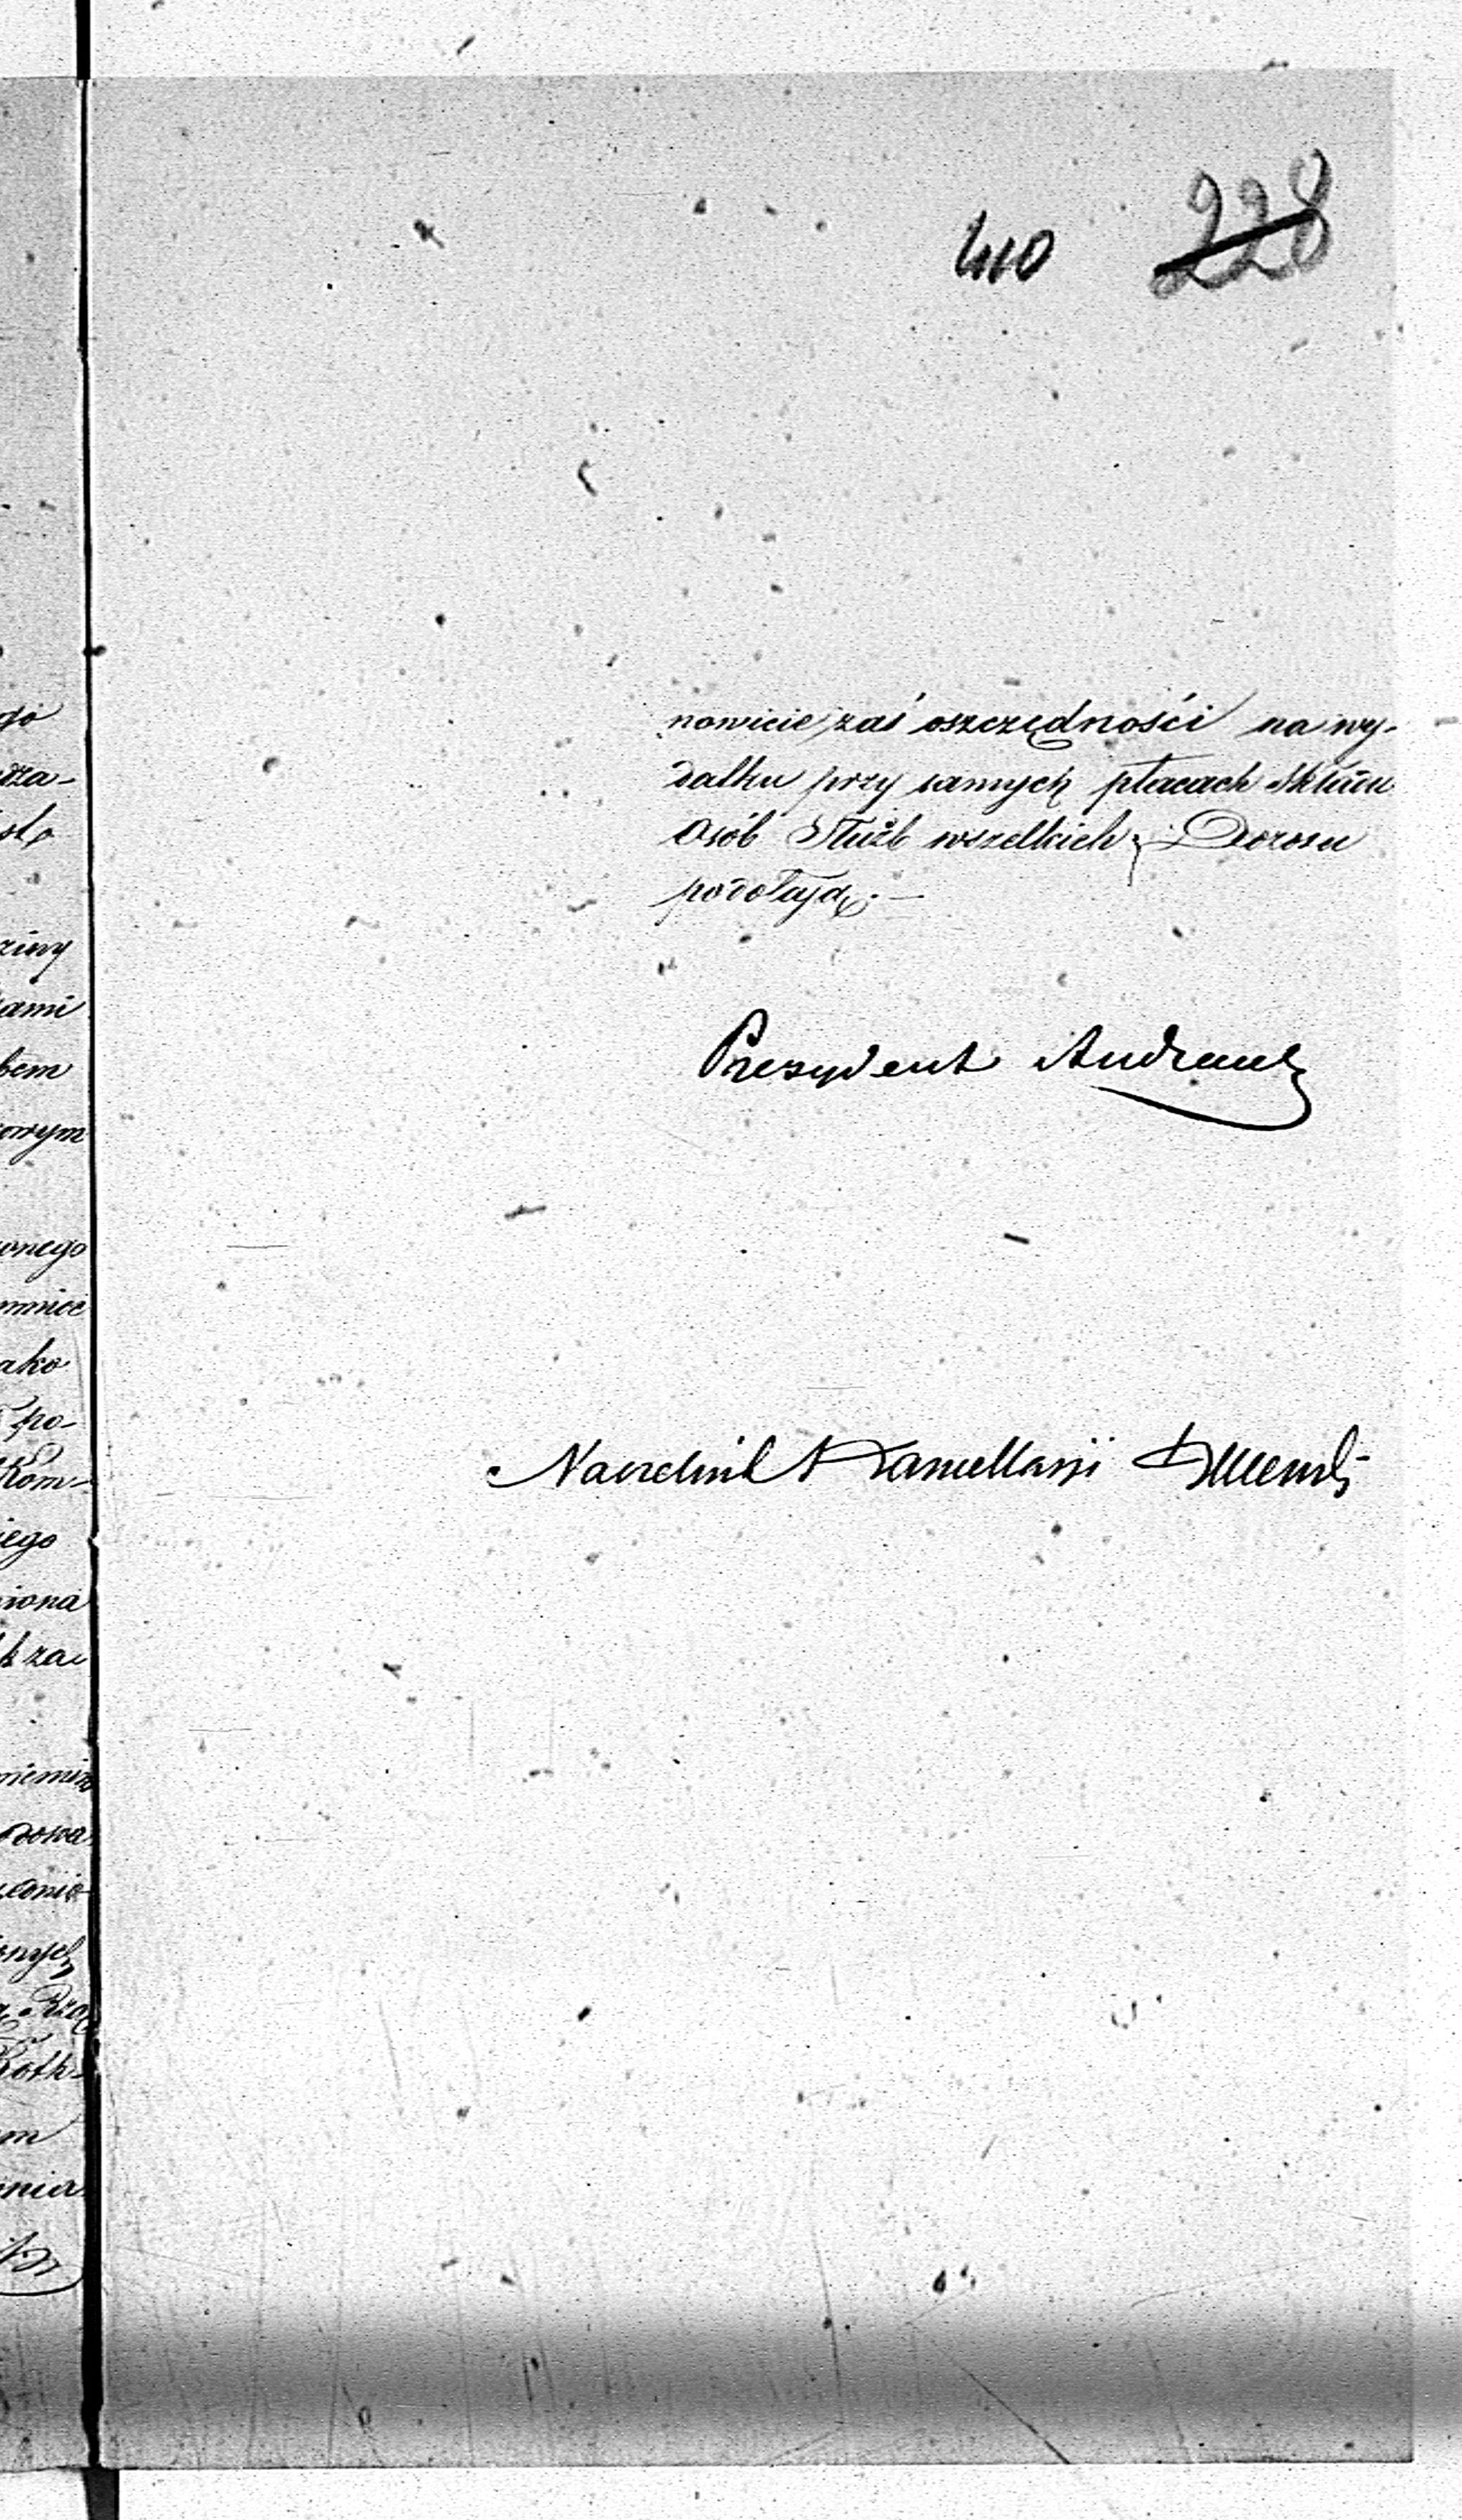 410 228
nowicie zaś oszczędnośći na wy-
datku przy samych płacach Składu
Osób Służb wszelkich, Dozoru
podołają. —
Prezydent Andrault
Naczelnik Kancellarji
go
dza-
ziny
ami
bem
owym
onego
mnicé
ako
po-
Kom-
iego
iona
k za
dowa
onych
m
nia